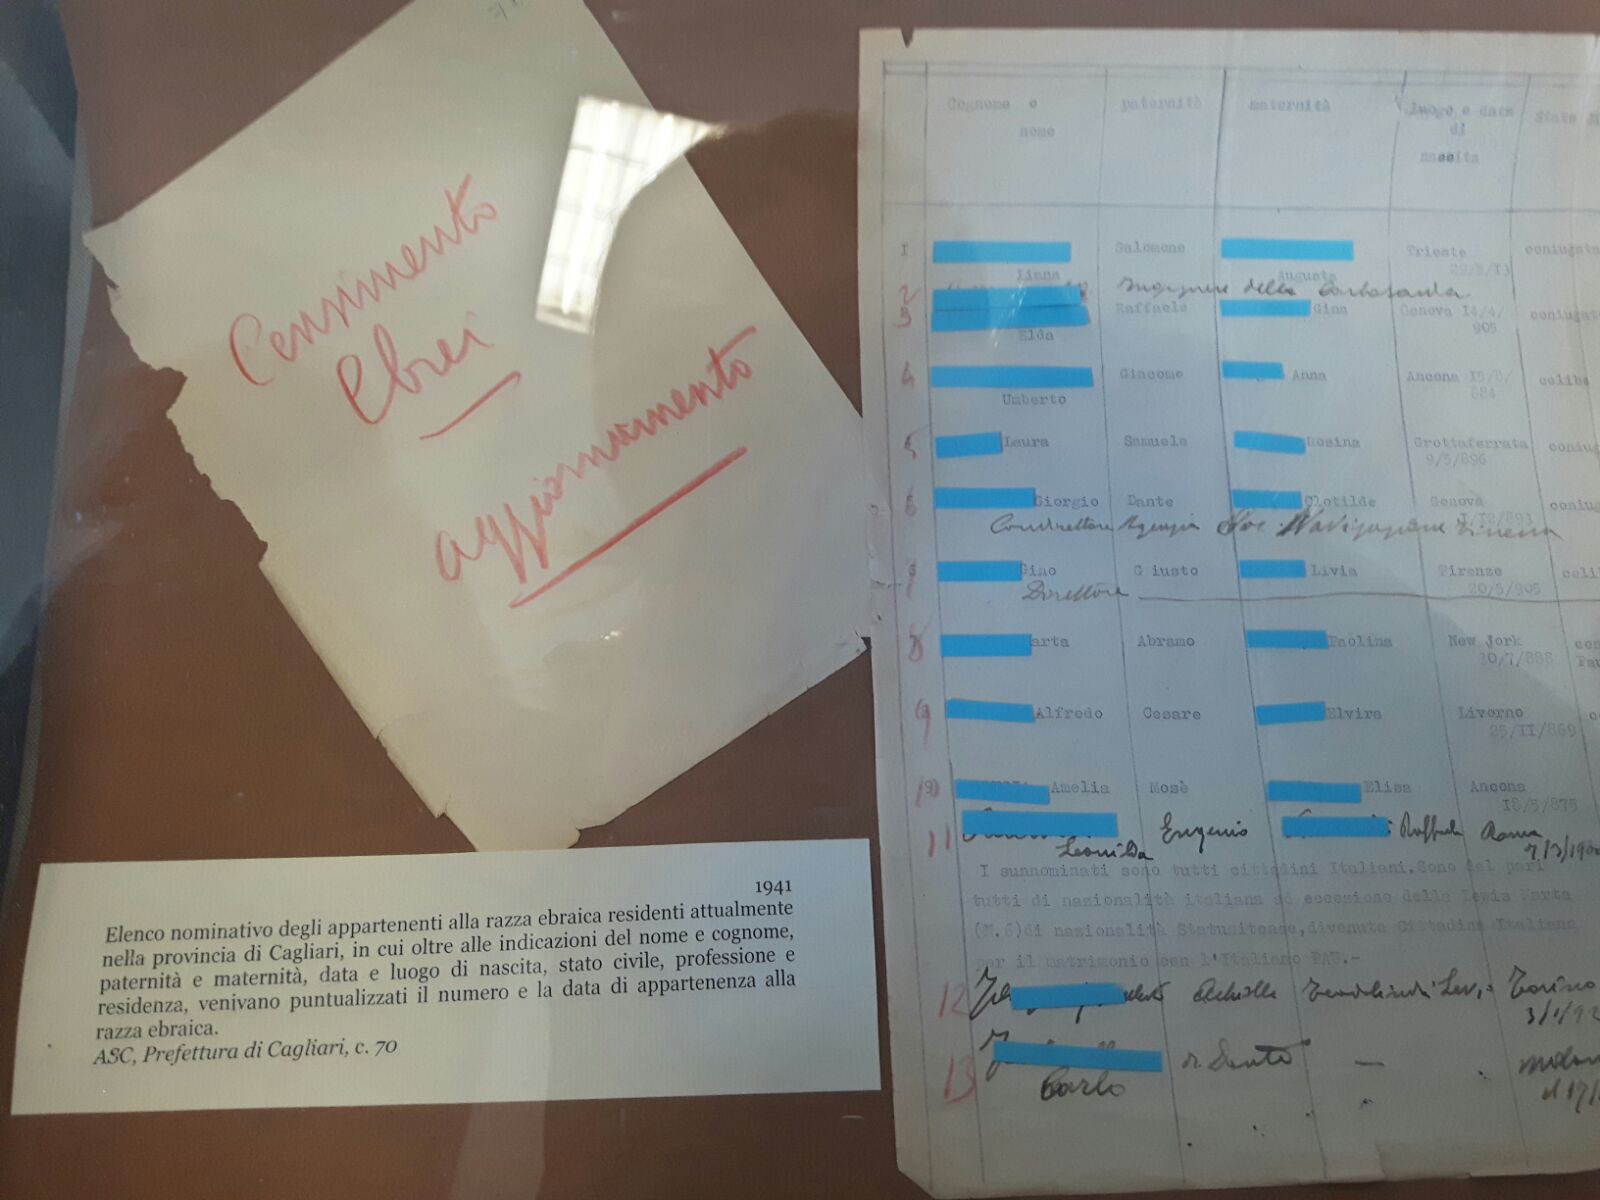 Censimento
Ebrei
aggiornamento
1941
Elenco nominativo degli appartenenti alla razza ebraica residenti attualmente
nella provincia di Cagliari, in cui oltre alle indicazioni del nome e cognome,
paternità e maternità, data e luogo di nascita, stato civile, professione e
residenza, venivano puntualizzati il numero e la data di appartenenza alla
razza ebraica.
ASC, Prefettura di Cagliari, c. 70
Cognome e nome paternità maternità Luogo e data di nascita Stato
1 Liana Salomone Augusta Trieste coniugata
2 Ingegnere della Carbosarda
3 Elda Raffaele Gina Genova 14/4/905 coniugat
4 Umberto Giacomo Anna Ancona 884 celibe
5 Laura Samuele Rosina Grottaferrata 9/5/896 coniug
6 Giorgio Dante Clotilde Genova coniug
Agenzia Soc. Navigazione Tirrenia
7 Gino Giusto Livia Firenze 20/5/905 celi
Direttore
8 arta Abramo Paolina New Jork
9 Alfredo Cesare Elvira Livorno 25/II/869
10 Amelia Mosè Elisa Ancona 18/5/875
11 Leonilda Eugenio Roma
I sunnominati sono tutti cittadini Italiani.Sono del pari
tutti di nazionalità italiana ad eccezione della Marta
(N.6)di nazionalità Statunitense,divenuta Cittadina Italiana
per il matrimonio con l'Italiano PAU.-
12 Achille Torino
13 Carlo Dante —